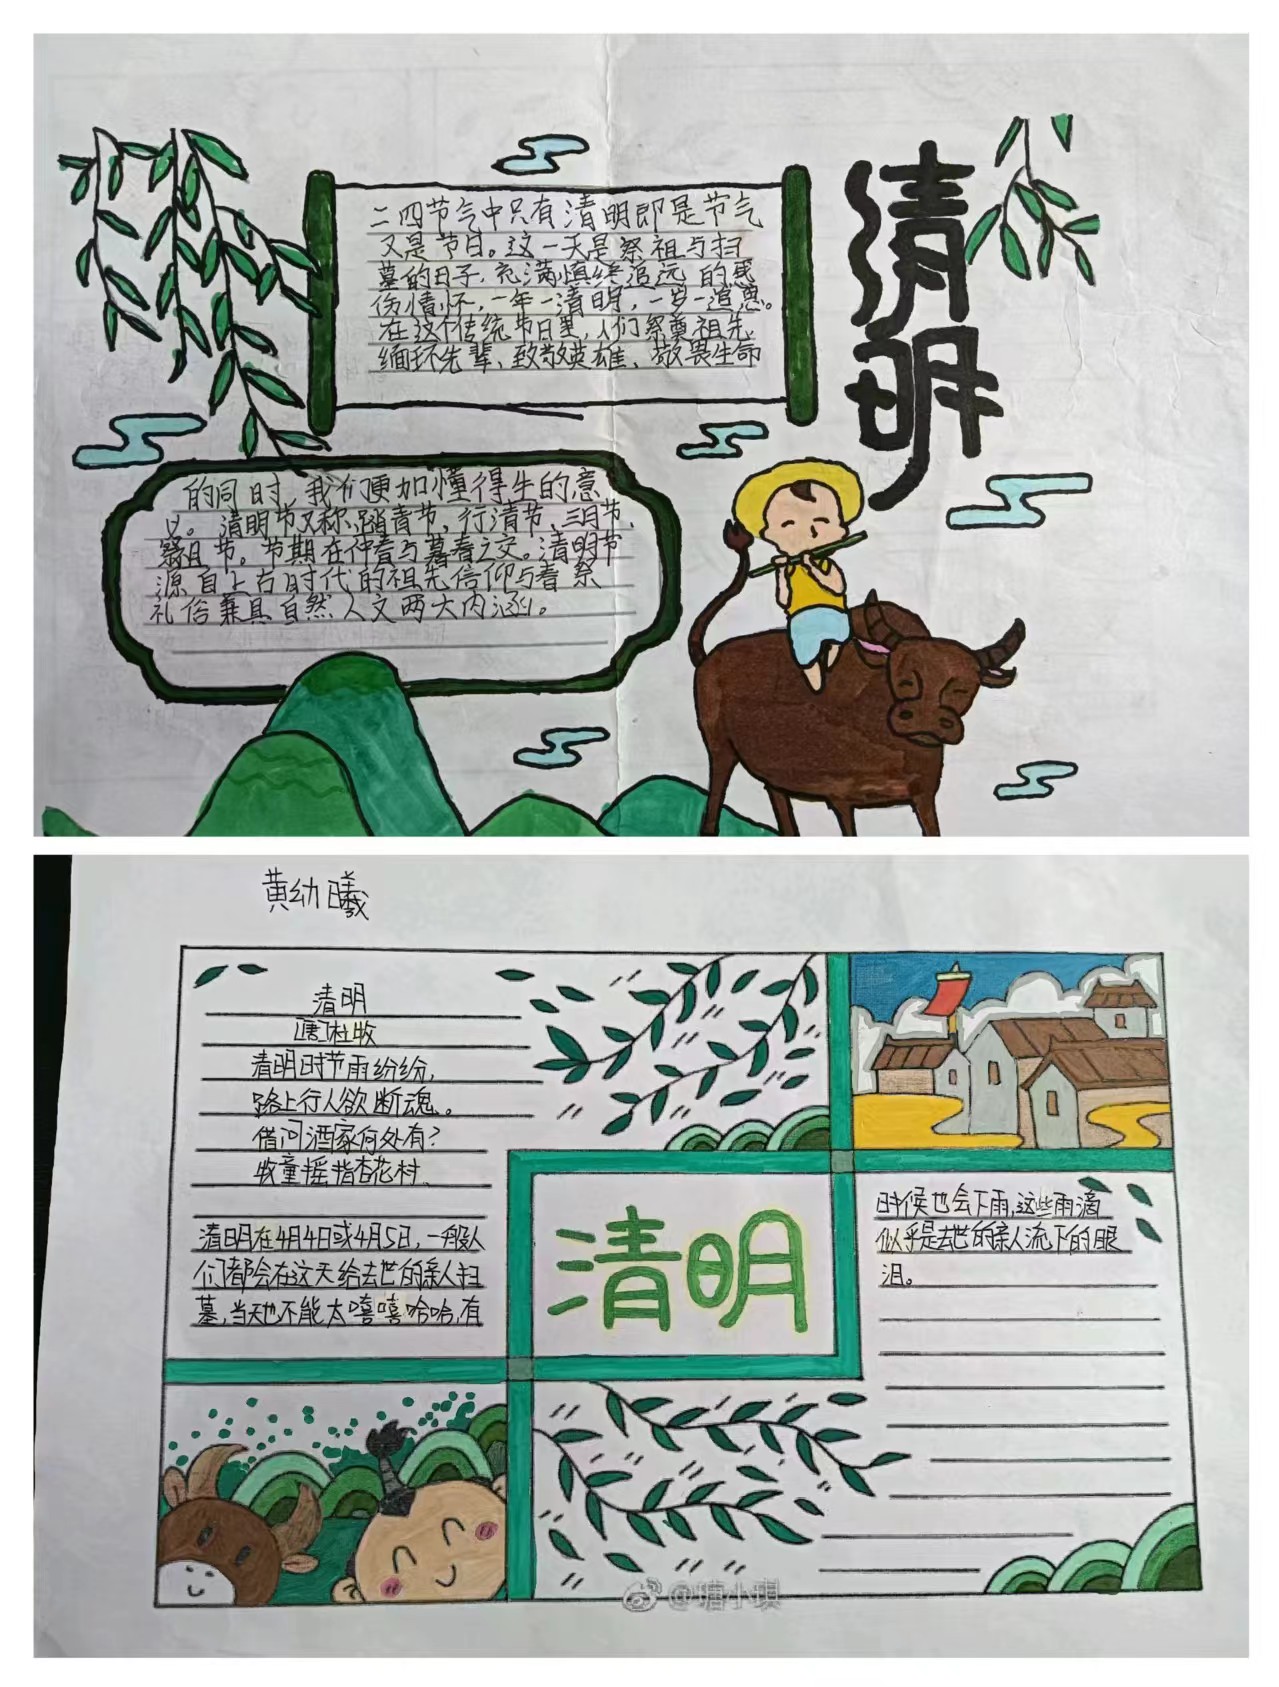 二四节气中只有清明即是节气
又是节日。这一天是祭祖与扫
墓的日子,充满慎终追远的感
伤情怀,一年一清明,一岁一追思。
在这个传统节日里,人们祭奠祖先、
缅环先辈、致敬英雄、敬畏生命
清明
的同时,我们更加懂得生的意
义。清明节又称踏青节,行清节、三月节、
祭祖节。节期在仲春与暮春之交。清明节
源自上古时代的祖先信仰与春祭
礼俗兼具自然人文两大内涵。
黄幼曦
清明
[唐]杜牧
清明时节雨纷纷,
路上行人欲断魂。
借问酒家何处有?
牧童摇指杏花村。
清明在4月4日或4月5日,一般人
们都会在这天给去世的亲人扫
墓,当天也不能太嘻嘻哈哈,有
清明
时候也会下雨,这些雨滴
似乎是去世的亲人流下的眼
泪。
@瑭小琪